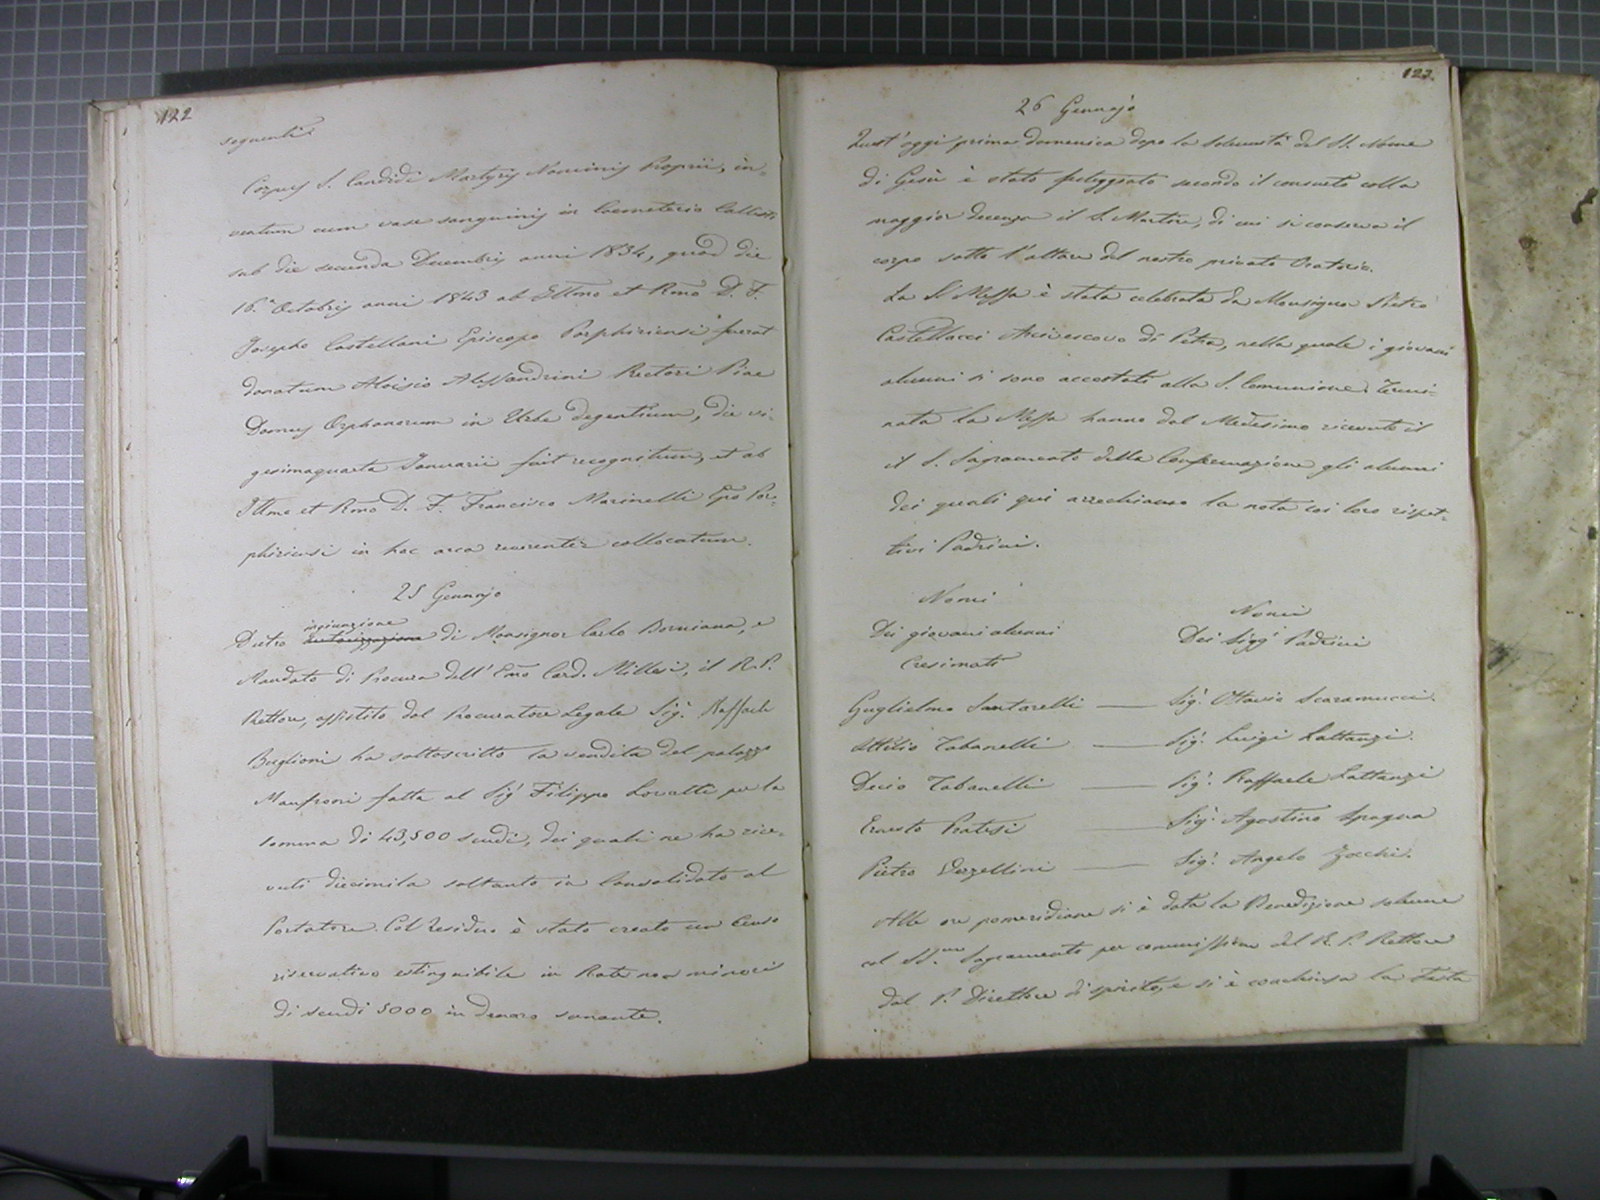 122
seguenti:
Corpus S. Candidi Martyris Nominis Proprii, in-
ventum cum vase sanguinis in Coemeterio Callisti,
sub die secunda Decembris anni 1834, quod die
16.a Octobris anni 1843 ab Illmo et Rmo D. F.
Josepho Castellani Episcopo Porphiriensi fuerat
donatum Aloisio Alessandrini Rectori Piae
Domus Orphanorum in Urbe degentium, die vi-
gesimaquarta Januarii fuit recognitum, et ab
Illmo et Rmo D. F. Francisco Marinelli Epō Por-
phiriensi in hac arca reverenter collocatum.
25 Gennajo
insinuazione
Dietro autorizzazione di Monsignor Carlo Borniana, e
Mandato di Procura dell' Emo Card. Millesi, il R. P.
Rettore, assistito dal Procuratore Legale Sig.r Raffaele
Buglioni ha sottoscritto la vendita del palazzo
Manfroni fatta al Sig.r Filippo Lovatti per la
somma di 43,500 scudi, dei quali ne ha rice-
vuti diecimila soltanto in Consolidato al
Portatore. Col residuo è stato creato un Censo
riservativo estinguibile in Rate non minori
di scudi 5000 in denaro sonante.
123.
26 Gennajo
Quest' oggi prima domenica dopo la solennità del SS. Nome
di Gesù è stato festeggiato secondo il consueto colla
maggior decenza il S. Martire, di cui si conserva il
corpo sotto l' altare del nostro privato Oratorio.
La S. Messa è stata celebrata da Monsignor Pietro
Castellacci Arcivescovo di Petra, nella quale i giovani
alunni si sono accostati alla S. Comunione. Termi-
nata la Messa hanno dal Medesimo ricevuto il
il S. Sagramento della Confermazione gli alunni
dei quali qui arrechiamo la nota coi loro rispet-
tivi Padrini.
Nomi
Dei giovani alunni
Cresimati
Nomi
Dei Sigg.i Padrini
Guglielmo Santarelli — Sig.r Ottavio Scaramucci.
Attilio Tabanelli — Sig.r Luigi Lattanzi.
Decio Tabanelli — Sig.r Raffaele Lattanzi
Ernesto Pratesi — Sig.r Agostino Spagna
Pietro Verzellini — Sig.r Angelo Zocchi.
Alle ore pomeridiane si è data la Benedizione solenne
col SS.mo Sagramento per commissione del R. P. Rettore
dal P. Direttore di spirito, e si è conchiusa la Festa